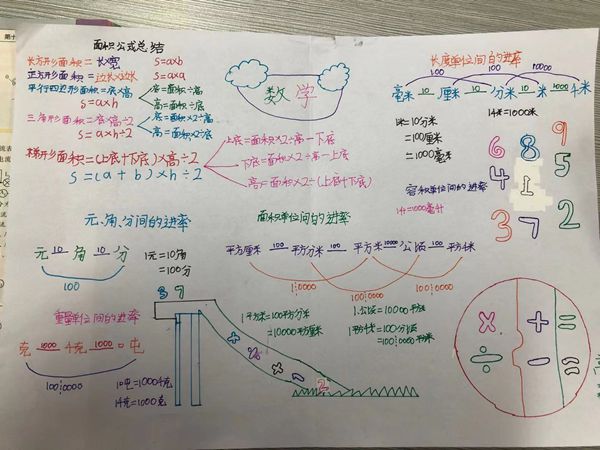 面积公式总结
长方形面积=长×宽 S=a×b
正方形面积=边长×边长 S=a×a
平行四边形面积=底×高
S=a×h
底=面积÷高
高=面积÷底
三角形面积=底×高÷2
S=a×h÷2
底=面积×2÷高
高=面积×2÷底
梯形面积=(上底+下底)×高÷2
S=(a+b)×h÷2
上底=面积×2÷高-下底
下底=面积×2÷高-上底
高=面积×2÷(上底+下底)
数学
长度单位间的进率
100 100 10000
毫米 10 厘米 10 分米 10 米 1000 千米
1千米=1000米
1米=10分米
=100厘米
=1000毫米
6 8 9
4 1 5
3 7 2
容积单位间的进率
1升=1000毫升
元、角、分间的进率
元 10 角 10 分
100
1元=10角
=100分
面积单位间的进率
平方厘米 100 平方分米 100 平方米 10000 公顷 100 平方千米
10000 1000000
1平方米=100平方分米
=10000平方厘米
1公顷=10000平方米
1平方千米=100公顷
=1000000平方米
重量单位间的进率
克 1000 千克 1000 吨
1000000
1吨=1000千克
1千克=1000克
3 7
+ % + - 2
× + =
÷ - ≈